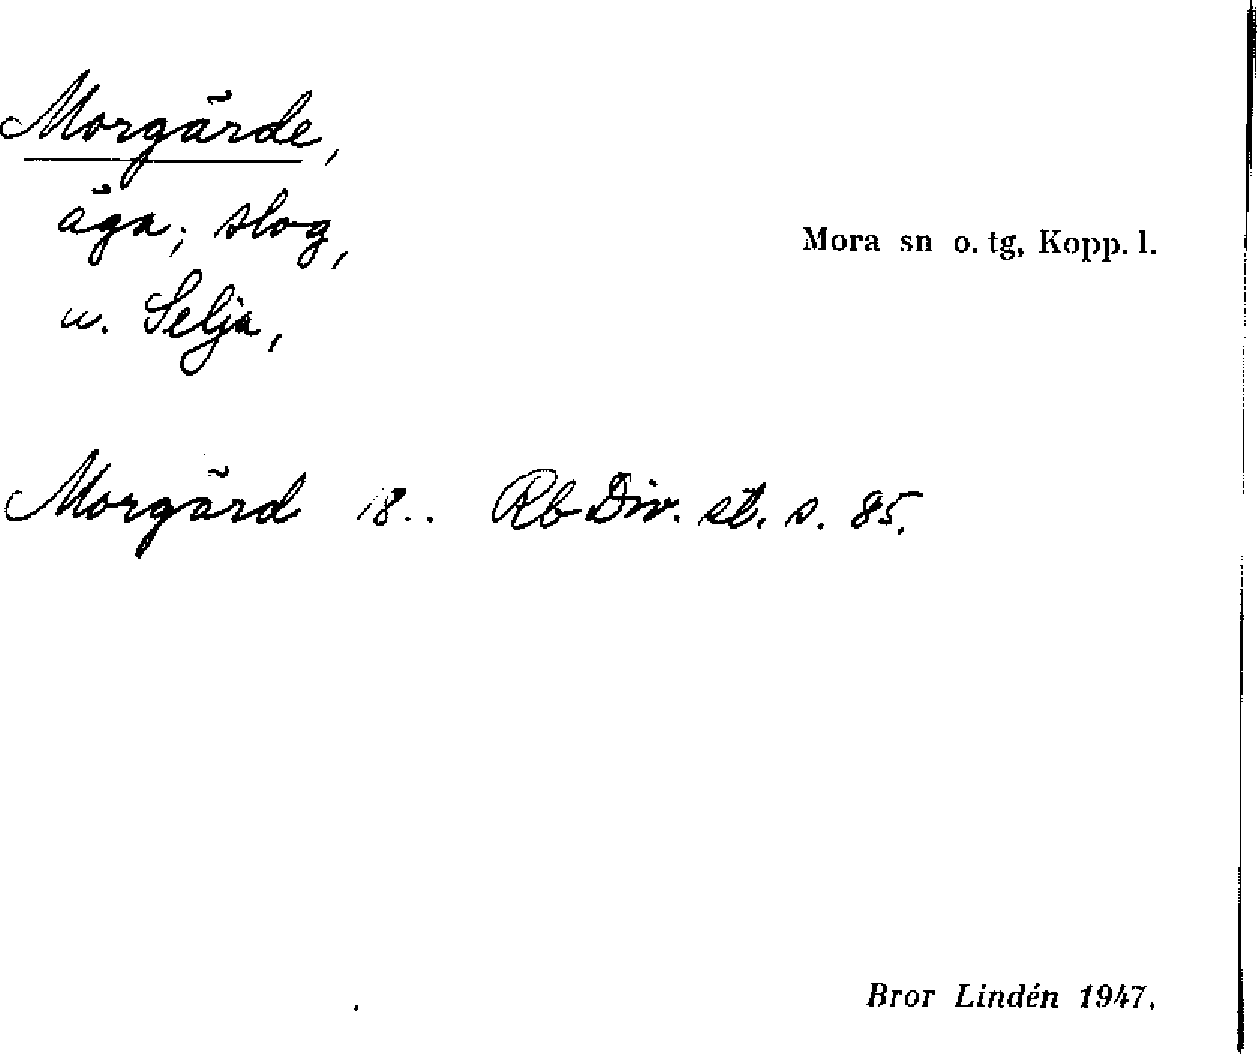 Morgärde,
äga; slog,
Mora sn o. tg, Kopp. l.
u. Selja,
Morgärd 18.. Rb Div. st. s. 85.
Bror Lindén 1947.